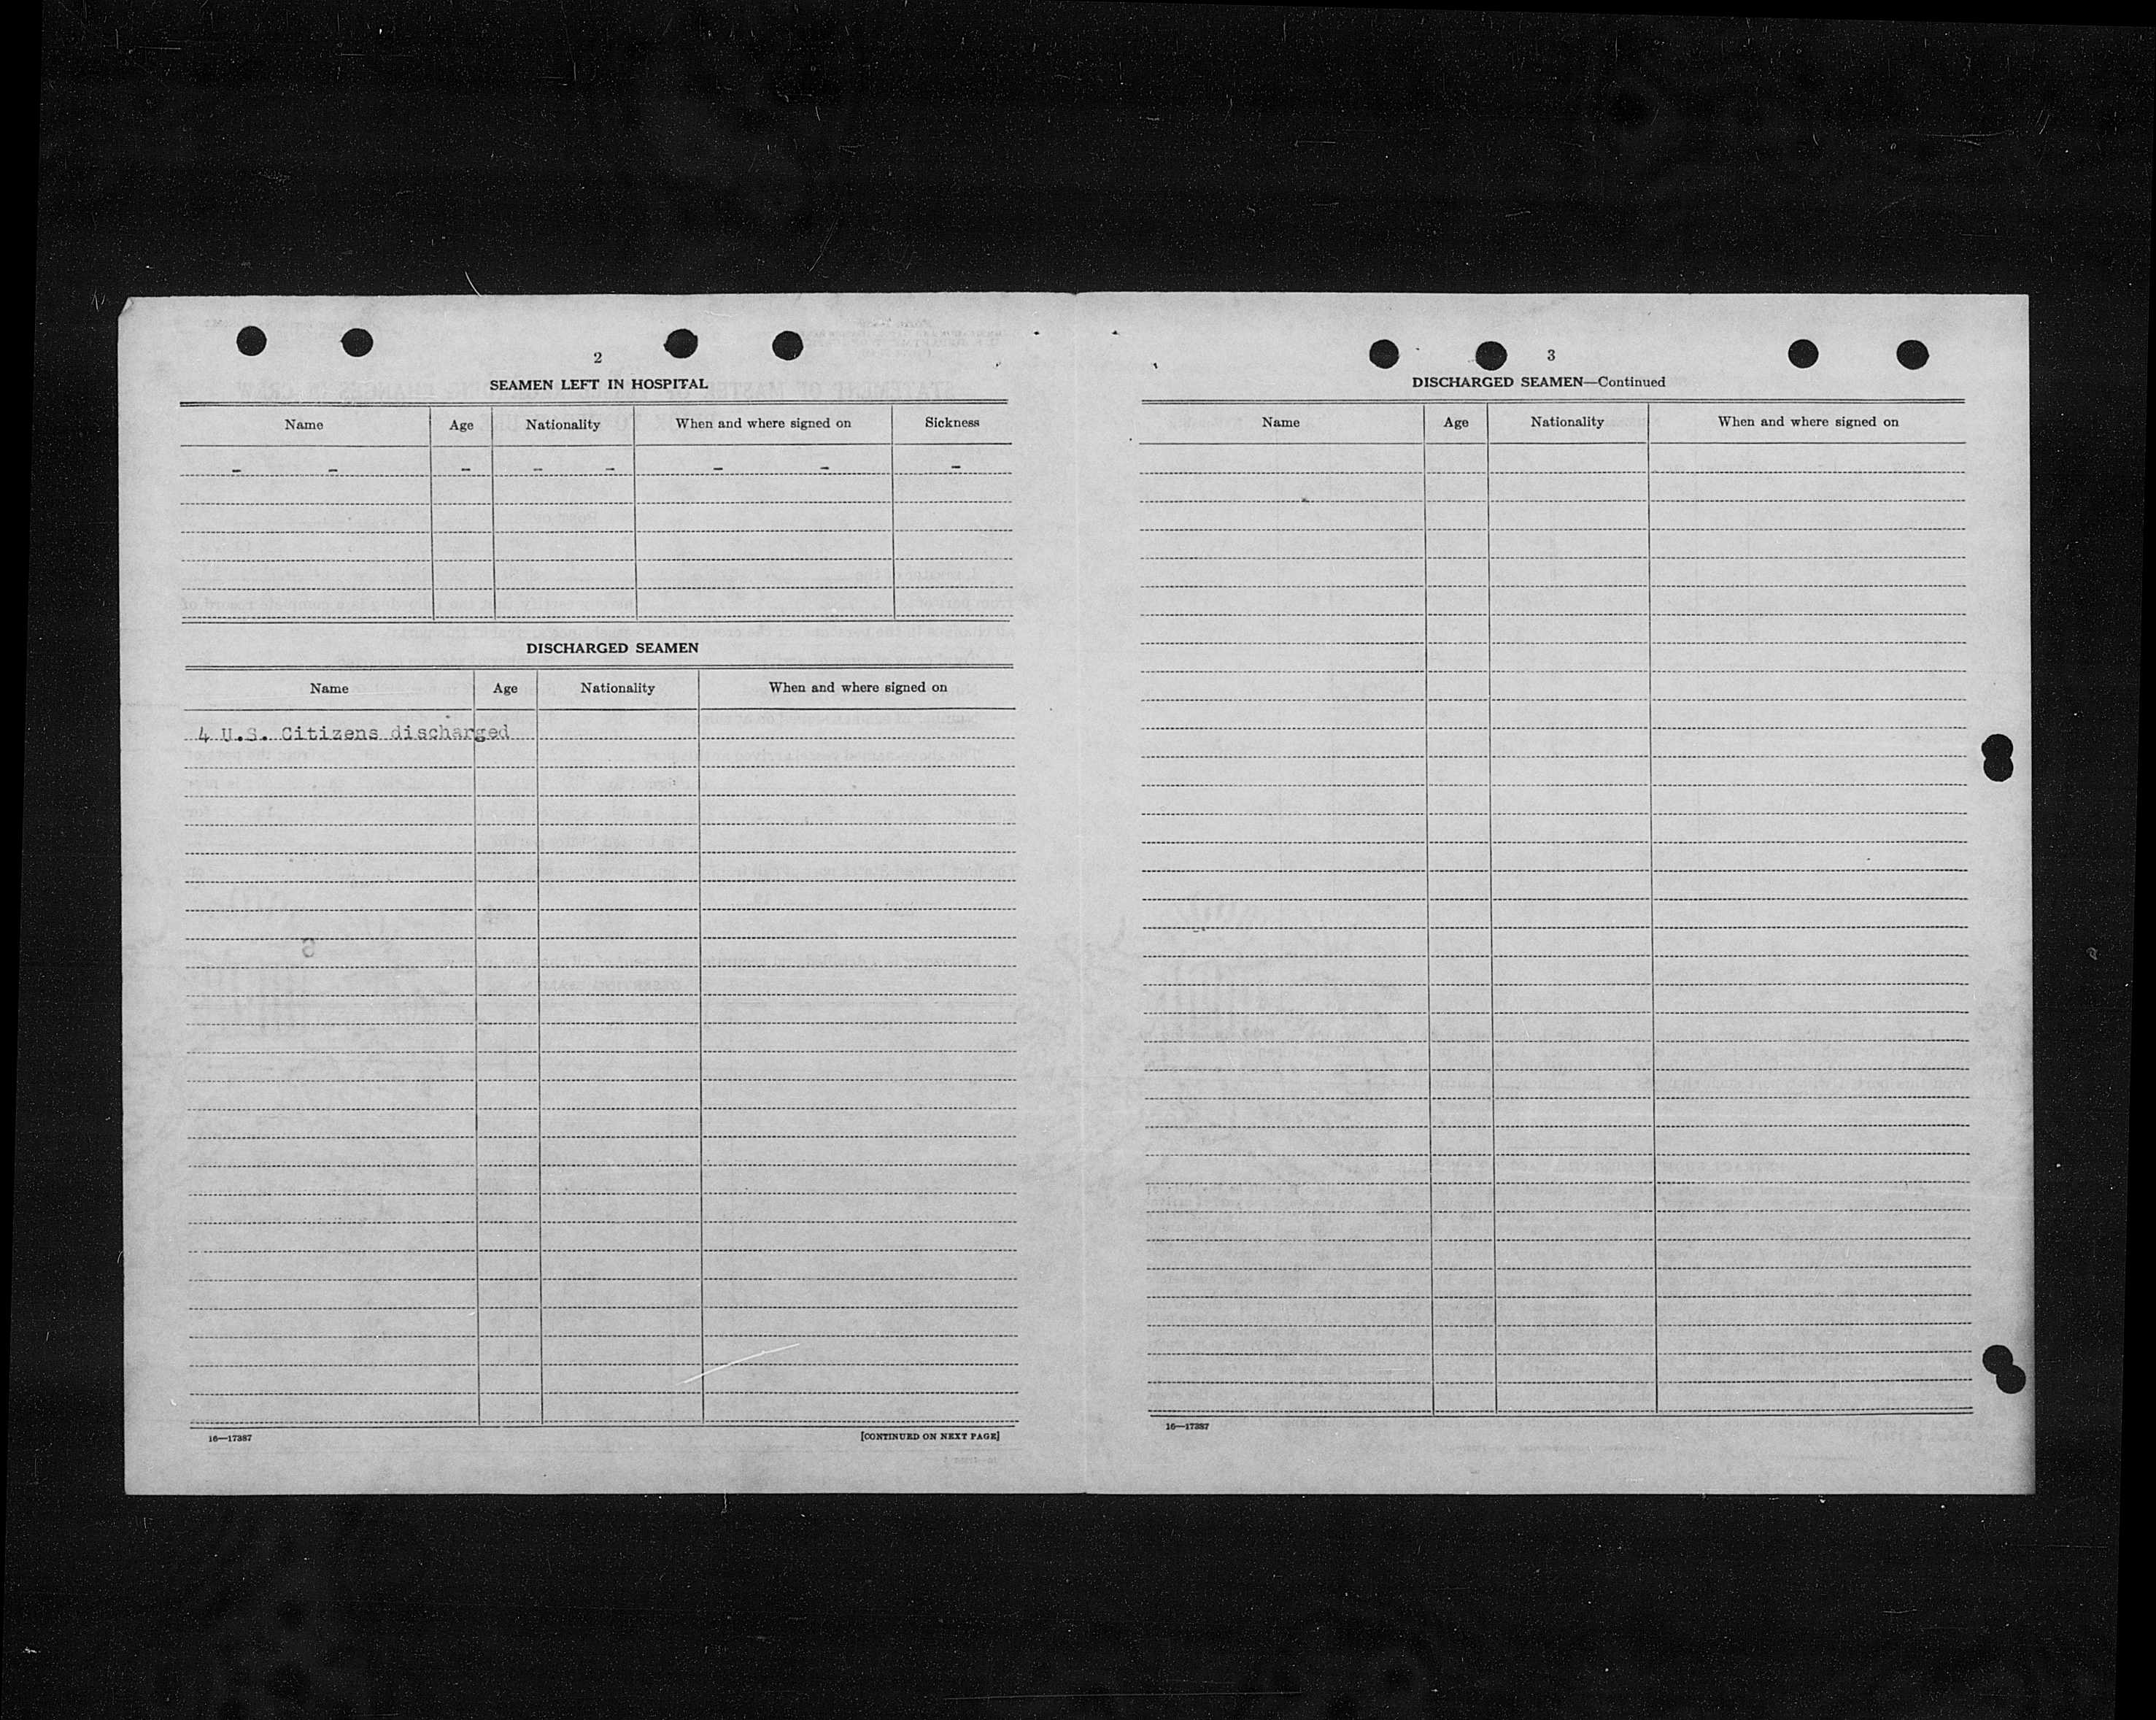 2
SEAMEN LEFT IN HOSPITAL
Name Age Nationality When and where signed on Sickness
- - - - - - - -
DISCHARGED SEAMEN
Name Age Nationality When and where signed on
4 U.S. Citizens discharged
16—17387 [CONTINUED ON NEXT PAGE]
3
DISCHARGED SEAMEN—Continued
Name Age Nationality When and where signed on
16—17387